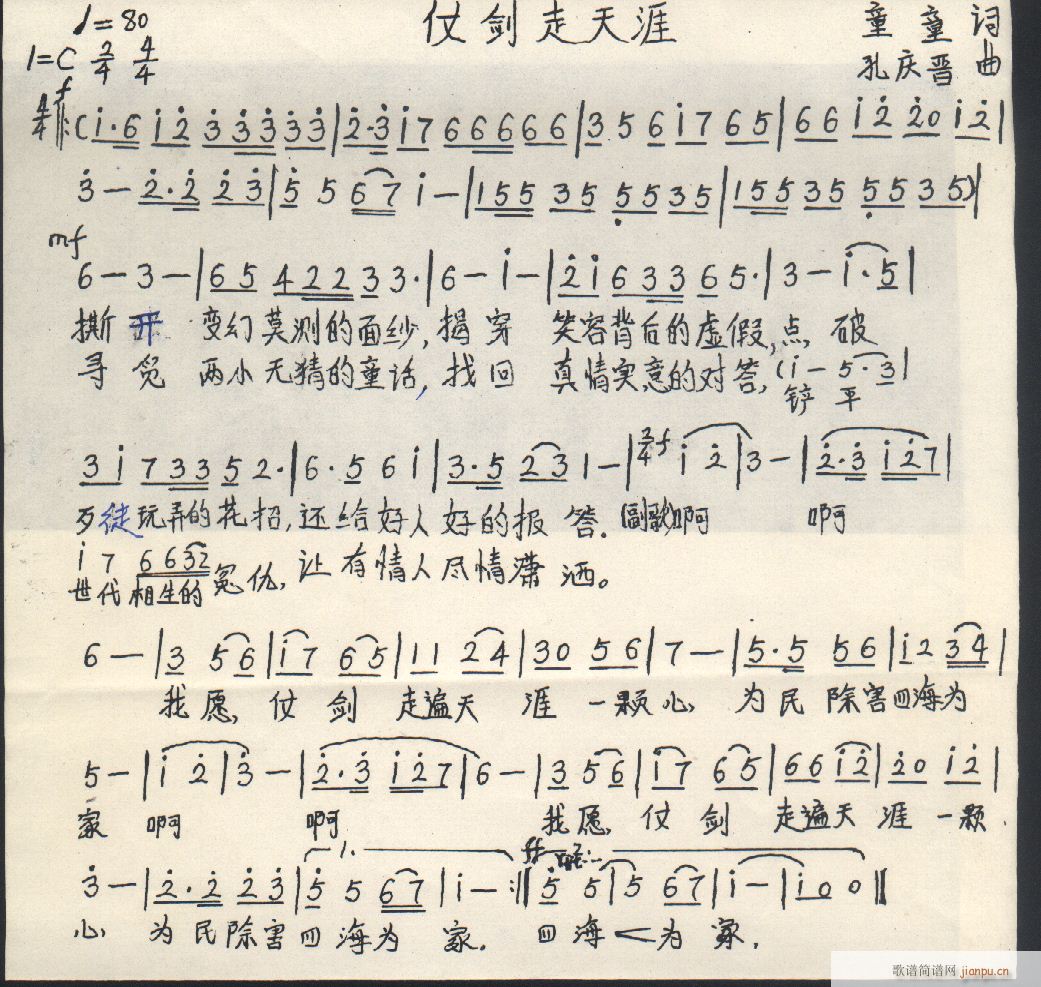 ♩=80 仗剑走天涯 童童 词
1=C 2/4 4/4 孔庆晋 曲
f
4/4 ‖:(i·6 i2 33333|2·3 i7 66666|3 5 6 i7 65|66 i2 20 i2|
3 - 2·2 23|5 5 67 i -|155 35 5535|155 35 5535)|
mf
6 - 3 -|65 422 3 3·|6 - i -|2i 633 6 5·|3 - i·5|
撕开 变幻莫测的面纱,揭穿 笑容背后的虚假,点破
寻觅 两小无猜的童话,找回 真情实意的对答,(i - 5·3|
铲平
3i 733 5 2·|6·5 6 i|3·5 23 1 -|2/4 f i 2|3 -|2·3 i27|
歹徒玩弄的花招,还给好人好的报答.副歌啊 啊
i 7 6632
世代相生的冤仇,让有情人尽情潇洒。
6 -|3 56|i7 65|11 24|30 56|7 -|5·5 56|i2 34|
我愿,仗剑走遍天涯一颗心,为民除害四海为
5 -|i 2|3 -|2·3 i27|6 -|3 56|i7 65|66 i2|20 i2|
家 啊 啊 我愿,仗剑走遍天涯一颗
1. ff
3 -|2·2 23|5 5 67|i - :‖5 5|5 67|i -|i00‖
心,为民除害四海为家.四海 为家.
歌谱简谱网 jianpu.cn